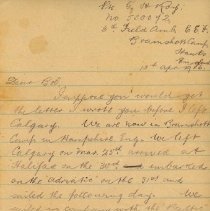 No 500072,
6th Field Amb. C.E.F.
Bramshott Camp
Hants
England
15th Apr 1916.
Dear Col.
I suppose you would get
the letter I wrote you before I left
Calgary. We are now in Bramshott
Camp in Hampshire Eng. We left
Calgary on Mar. 25th arrived at
Halifax on the 30th embarked
on the Adriatic on the 31st and
sailed the following day. We